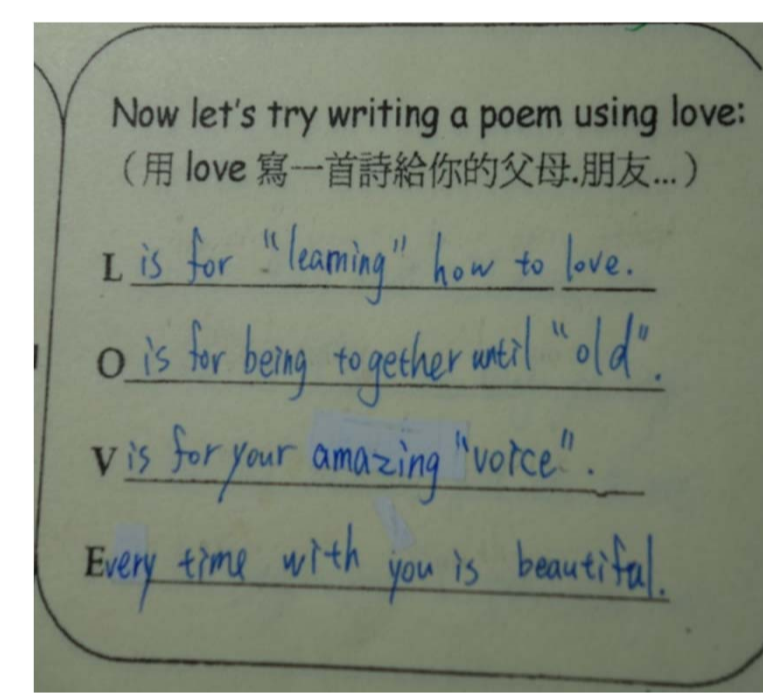 Now let's try writing a poem using love:
（用 love 寫一首詩給你的父母.朋友...）
L is for "learning" how to love.
O is for being together until "old".
V is for your amazing "voice".
Every time with you is beautiful.